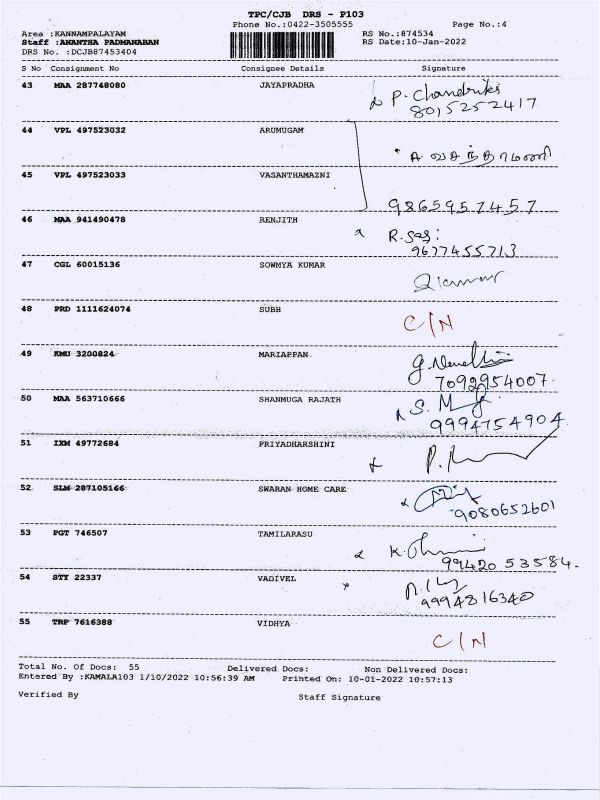 TPC/CJB DRS - P103
Phone No.:0422-3505555 Page No.:4
Area :KANNAMPALAYAM RS No.:874534
Staff :ANANTHA PADMANABAN RS Date:10-Jan-2022
DRS No. :DCJB87453404
S No Consignment No Consignee Details Signature
43 MAA 287748080 JAYAPRADHA P. Chandrika
8015252417
44 VPL 497523032 ARUMUGAM
வசந்தாமணி
45 VPL 497523033 VASANTHAMAZNI
9865957457
46 MAA 941490478 RENJITH R.
9677455713
47 CGL 60015136 SOWMYA KUMAR
48 PRD 1111624074 SUBH C/N
49 KMU 3200824 MARIAPPAN
7092954007
50 MAA 563710666 SHANMUGA RAJATH S. M
9994754904
51 IXM 49772684 PRIYADHARSHINI P.
52 SLM 287105166 SWARAN HOME CARE
9080652601
53 PGT 746507 TAMILARASU K.
99420 53584.
54 STY 22337 VADIVEL
9994816340
55 TRP 7616388 VIDHYA C/N
Total No. Of Docs: 55 Delivered Docs: Non Delivered Docs:
Entered By :KAMALA103 1/10/2022 10:56:39 AM Printed On: 10-01-2022 10:57:13
Verified By Staff Signature